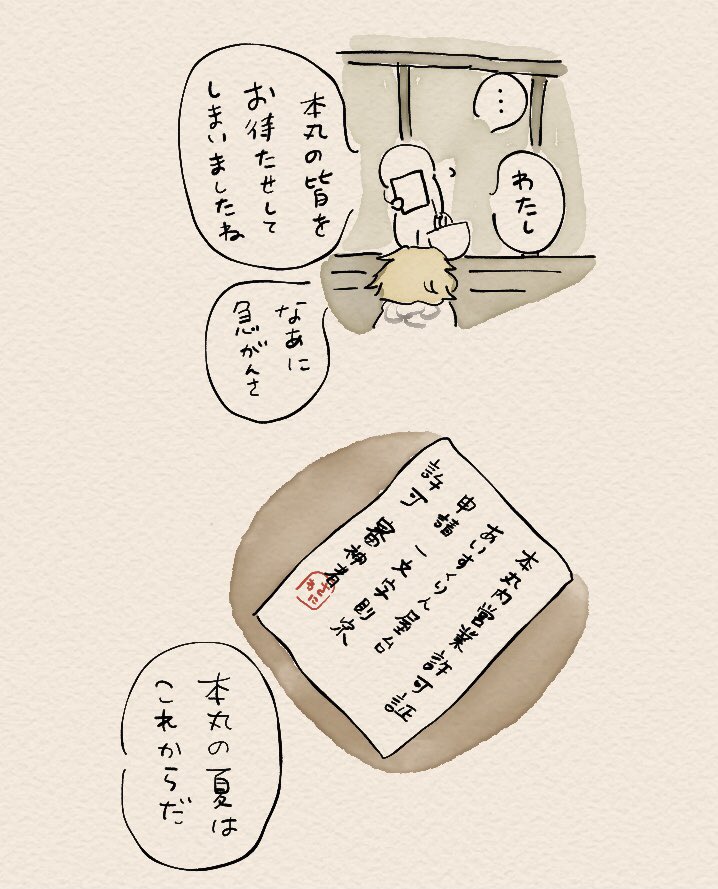 わたし
…
本丸の皆を
お待たせして
しまいましたね
なあに
急がんさ
本丸内営業許可証
あいすくりん屋台
申請 一文字則宗
許可 審神者
さに
本丸の夏は
これからだ